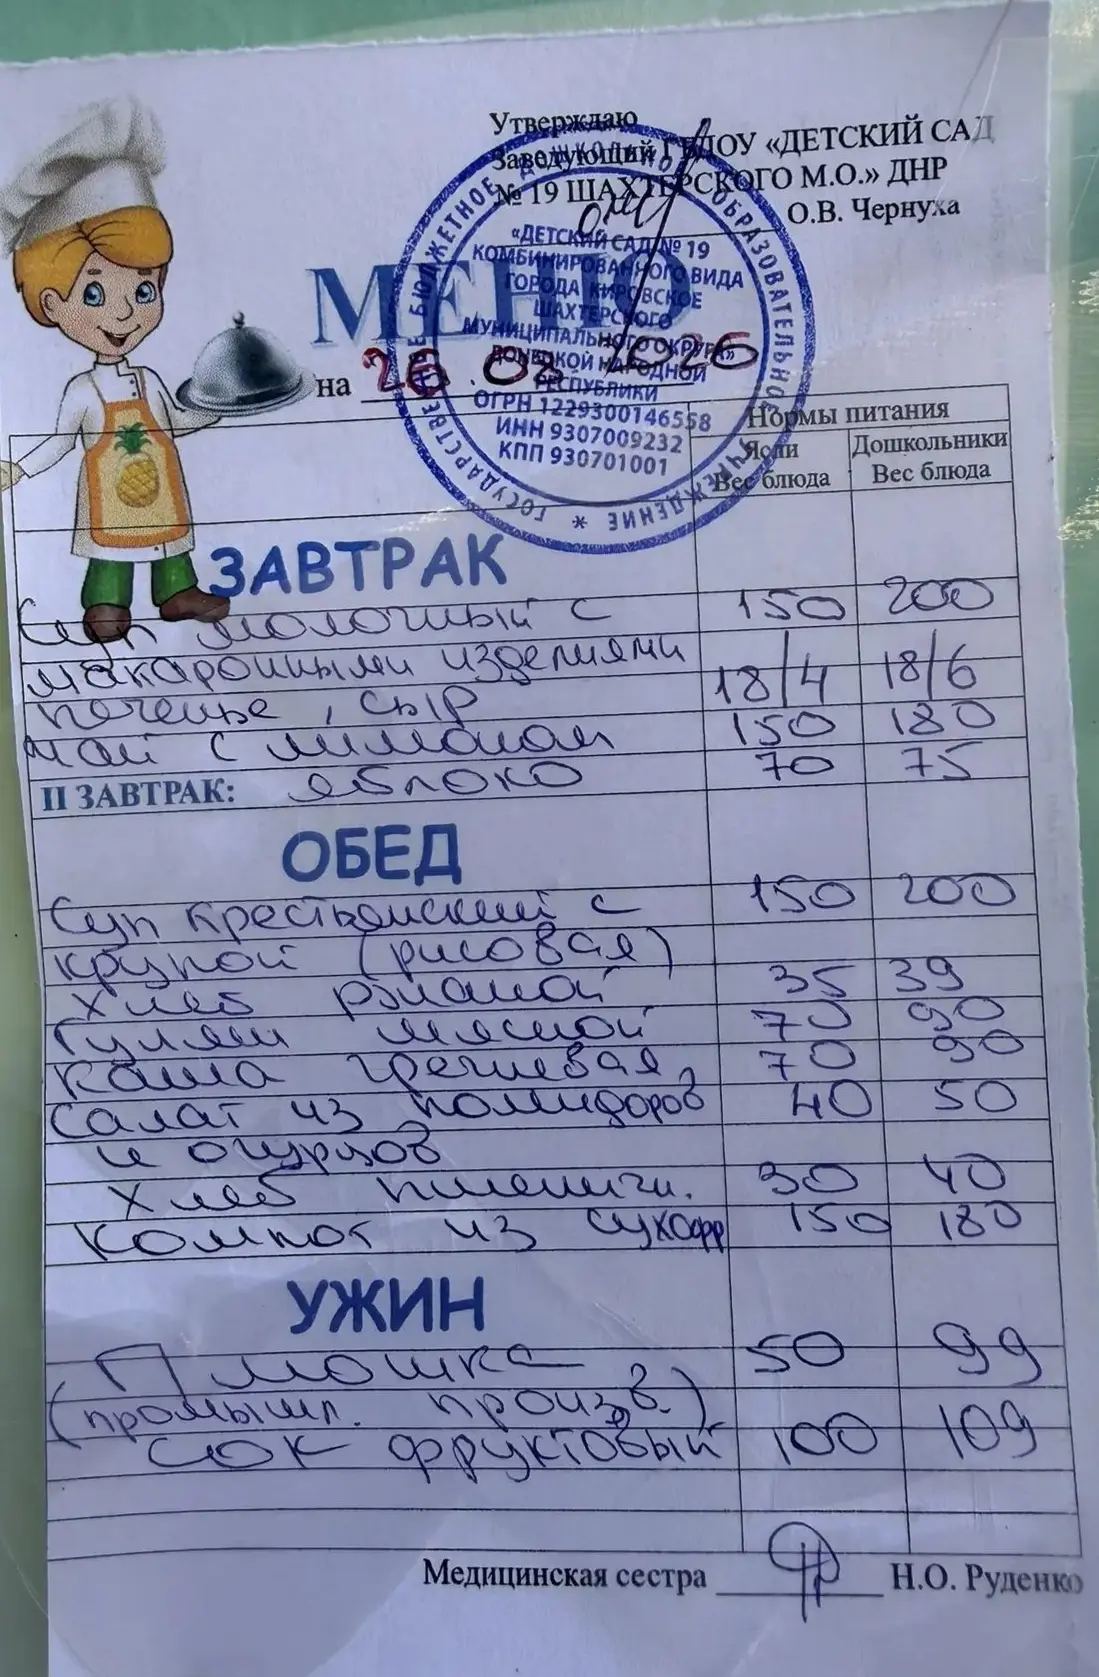 Утверждаю
Заведующий ГБДОУ «ДЕТСКИЙ САД
№ 19 ШАХТЕРСКОГО М.О.» ДНР
О.В. Чернуха
ГОСУДАРСТВЕННОЕ БЮДЖЕТНОЕ ДОШКОЛЬНОЕ ОБРАЗОВАТЕЛЬНОЕ УЧРЕЖДЕНИЕ *
«ДЕТСКИЙ САД № 19
КОМБИНИРОВАННОГО ВИДА
ГОРОДА КИРОВСКОЕ
ШАХТЕРСКОГО
МУНИЦИПАЛЬНОГО ОКРУГА»
ДОНЕЦКОЙ НАРОДНОЙ
РЕСПУБЛИКИ
ОГРН 1229300146558
ИНН 9307009232
КПП 930701001
МЕНЮ
на 26.02.2026
Нормы питания
Ясли Дошкольники
Вес блюда Вес блюда
ЗАВТРАК
Суп молочный с 150 200
макаронными изделиями
печенье, сыр 18/4 18/6
чай с лимоном 150 180
II ЗАВТРАК: яблоко 70 75
ОБЕД
Суп крестьянский с 150 200
крупой (рисовая)
хлеб ржаной 35 39
Гуляш мясной 70 90
каша гречневая, 70 90
салат из помидоров 40 50
и огурцов
хлеб пшенич. 30 40
компот из сухофр 150 180
УЖИН
50 99
(промышл. произв.)
сок фруктовый 100 109
Медицинская сестра Н.О. Руденко